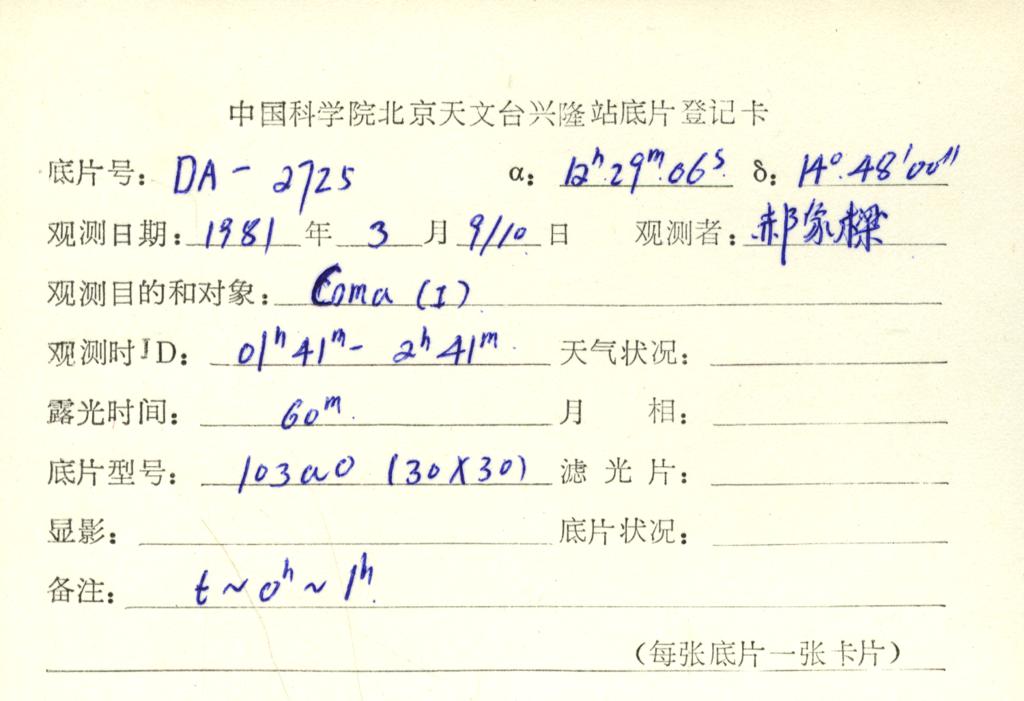 中国科学院北京天文台兴隆站底片登记卡
底片号: DA - 2725 α: 12ʰ.29ᵐ.06ˢ. δ: 14°.48′00″
观测日期: 1981 年 3 月 9/10 日 观测者: 郝象樑
观测目的和对象: Coma (I)
观测时JD: 01ʰ 41ᵐ - 2ʰ 41ᵐ. 天气状况:
露光时间: 60ᵐ. 月 相:
底片型号: 103aO (30X30) 滤 光 片:
显影: 底片状况:
备注: t ~ 0ʰ ~ 1ʰ.
(每张底片一张卡片)